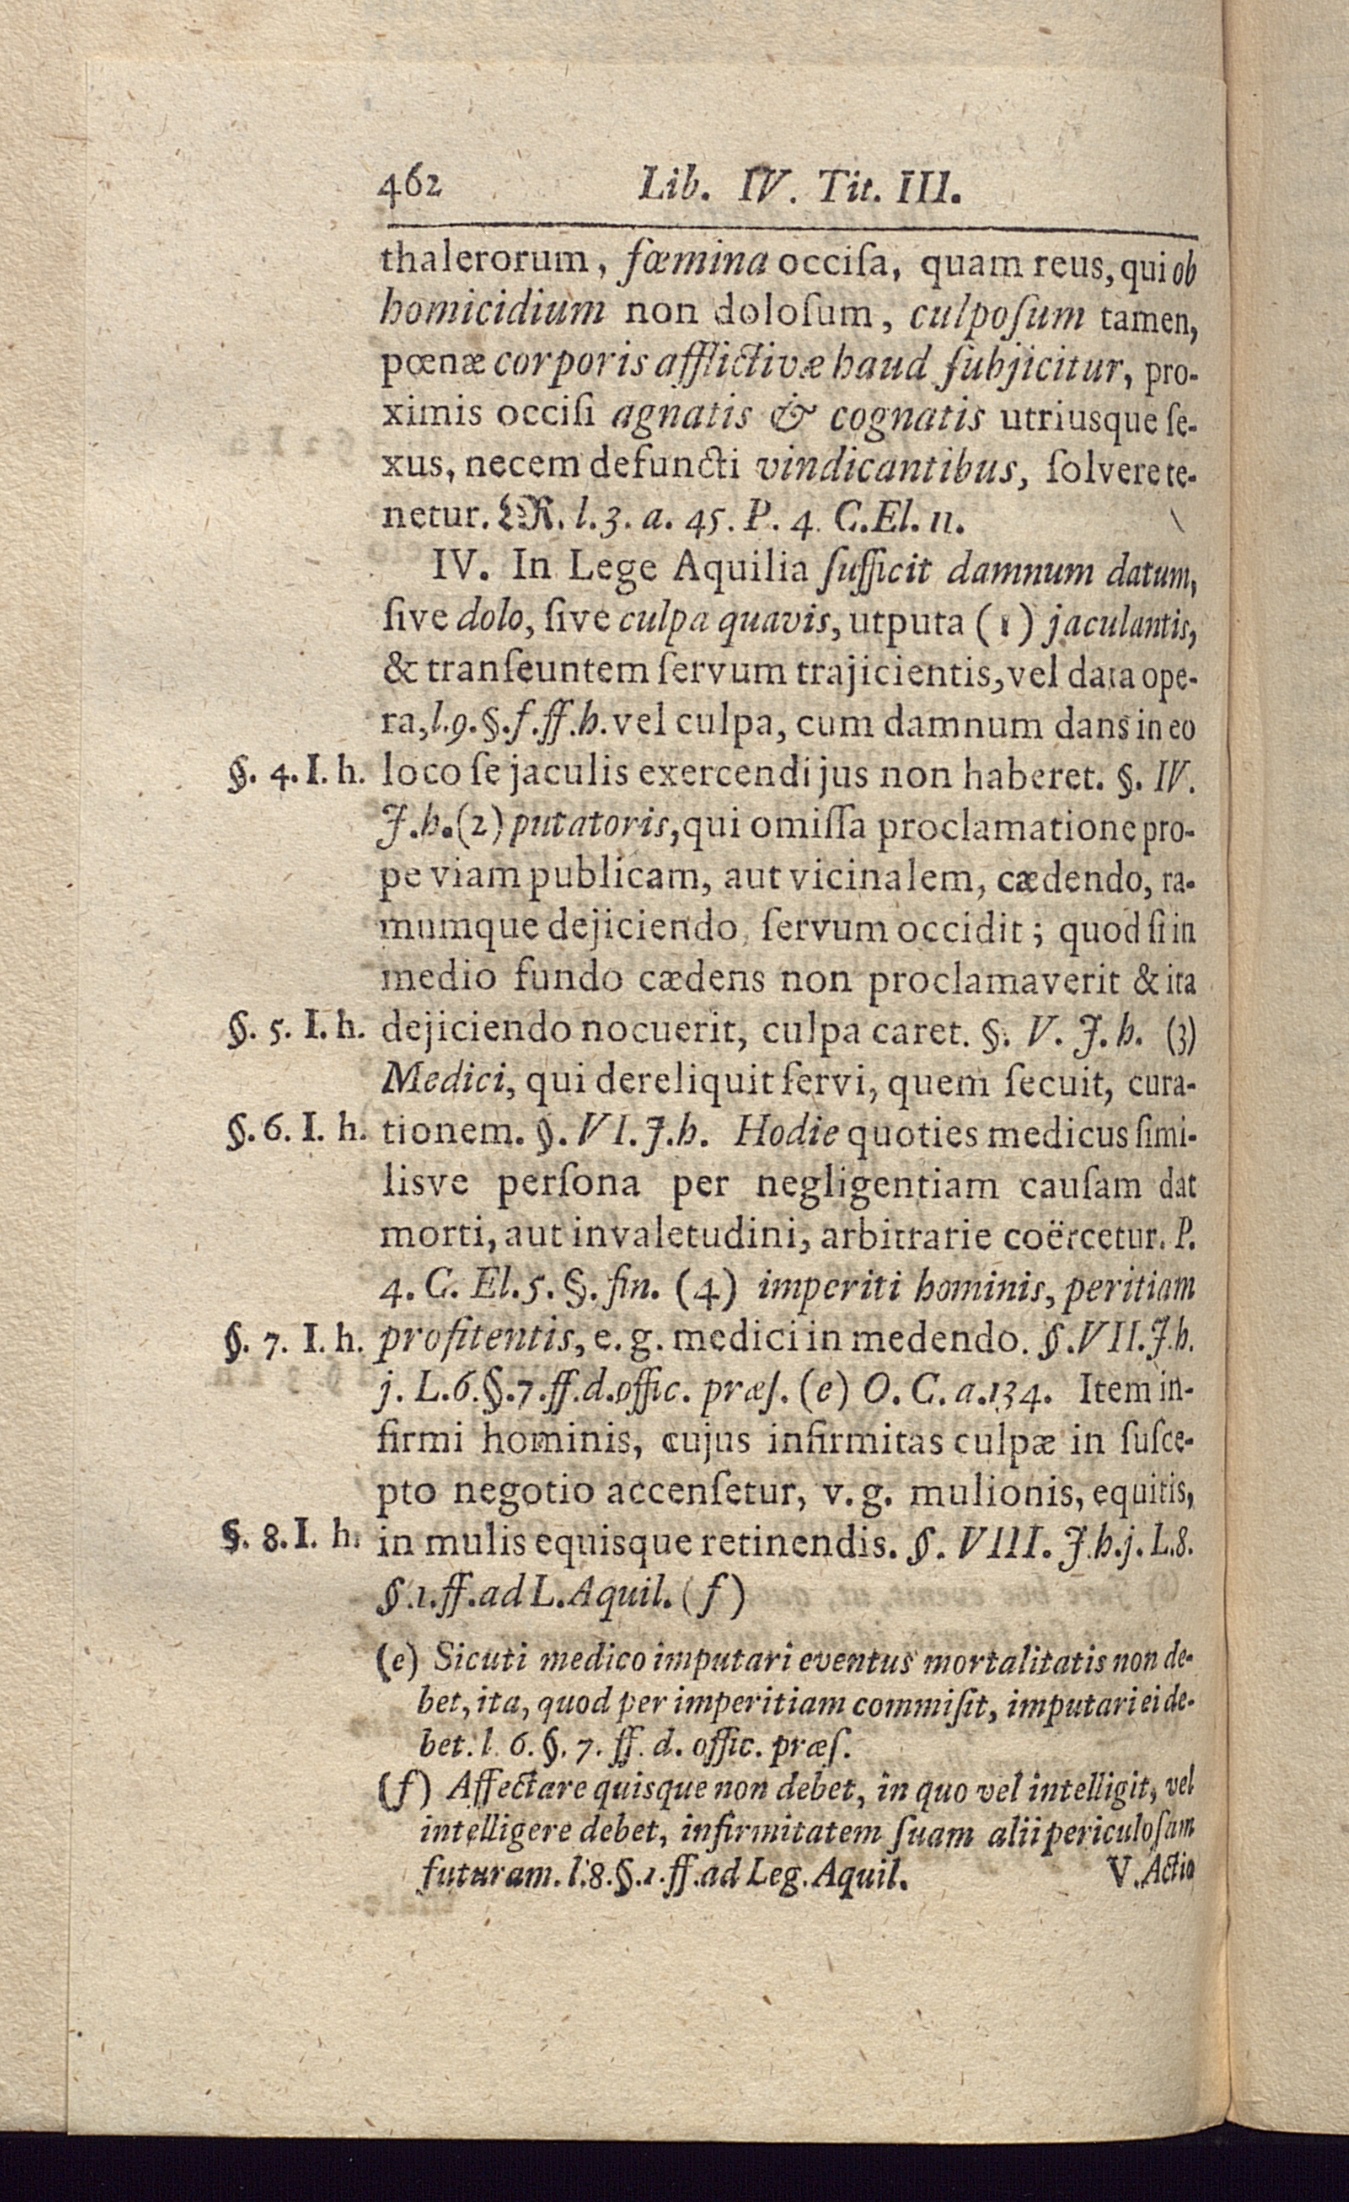 462 Lib. IV. Tit. III.
thalerorum, fœmina occiſa, quam reus, qui ob
homicidium non doloſum, culpoſum tamen,
pœnæ corporis afflictivæ haud ſubjicitur, pro-
ximis occiſi agnatis & cognatis utriusque ſe-
xus, necem defuncti vindicantibus, ſolvere te-
netur. LR. l. 3. a. 45. P. 4. C. El. 11.
IV. In Lege Aquilia ſufficit damnum datum,
ſive dolo, ſive culpa quavis, utputa (1) jaculantis,
& tranſeuntem ſervum trajicientis, vel data ope-
ra, l. 9. §. f. ff. h. vel culpa, cum damnum dans in eo
§. 4. I. h. loco ſe jaculis exercendi jus non haberet. §. IV.
J. h. (2) putatoris, qui omiſſa proclamatione pro-
pe viam publicam, aut vicinalem, cædendo, ra-
mumque dejiciendo, ſervum occidit; quod ſi in
medio fundo cædens non proclamaverit & ita
§. 5. I. h. dejiciendo nocuerit, culpa caret. §. V. J. h. (3)
Medici, qui dereliquit ſervi, quem ſecuit, cura-
§. 6. I. h. tionem. §. VI. J. h. Hodie quoties medicus ſimi-
lisve perſona per negligentiam cauſam dat
morti, aut invaletudini, arbitrarie coërcetur. P.
4. C. El. 5. §. fin. (4) imperiti hominis, peritiam
§. 7. I. h. profitentis, e. g. medici in medendo. §. VII. J. h.
j. L. 6. §. 7. ff. d. offic. præſ. (e) O. C. a. 134. Item in-
firmi hominis, cujus infirmitas culpæ in ſuſce-
pto negotio accenſetur, v. g. mulionis, equitis,
§. 8. I. h. in mulis equisque retinendis. §. VIII. J. h. j. L. 8.
§. 1. ff. ad L. Aquil. (f)
(e) Sicuti medico imputari eventus mortalitatis non de-
bet, ita, quod per imperitiam commiſit, imputari ei de-
bet. l. 6. §. 7. ff. d. offic. præſ.
(f) Affectare quisque non debet, in quo vel intelligit, vel
intelligere debet, infirmitatem ſuam alii periculoſam
futuram. l. 8. §. 1. ff. ad Leg. Aquil. V. Actio